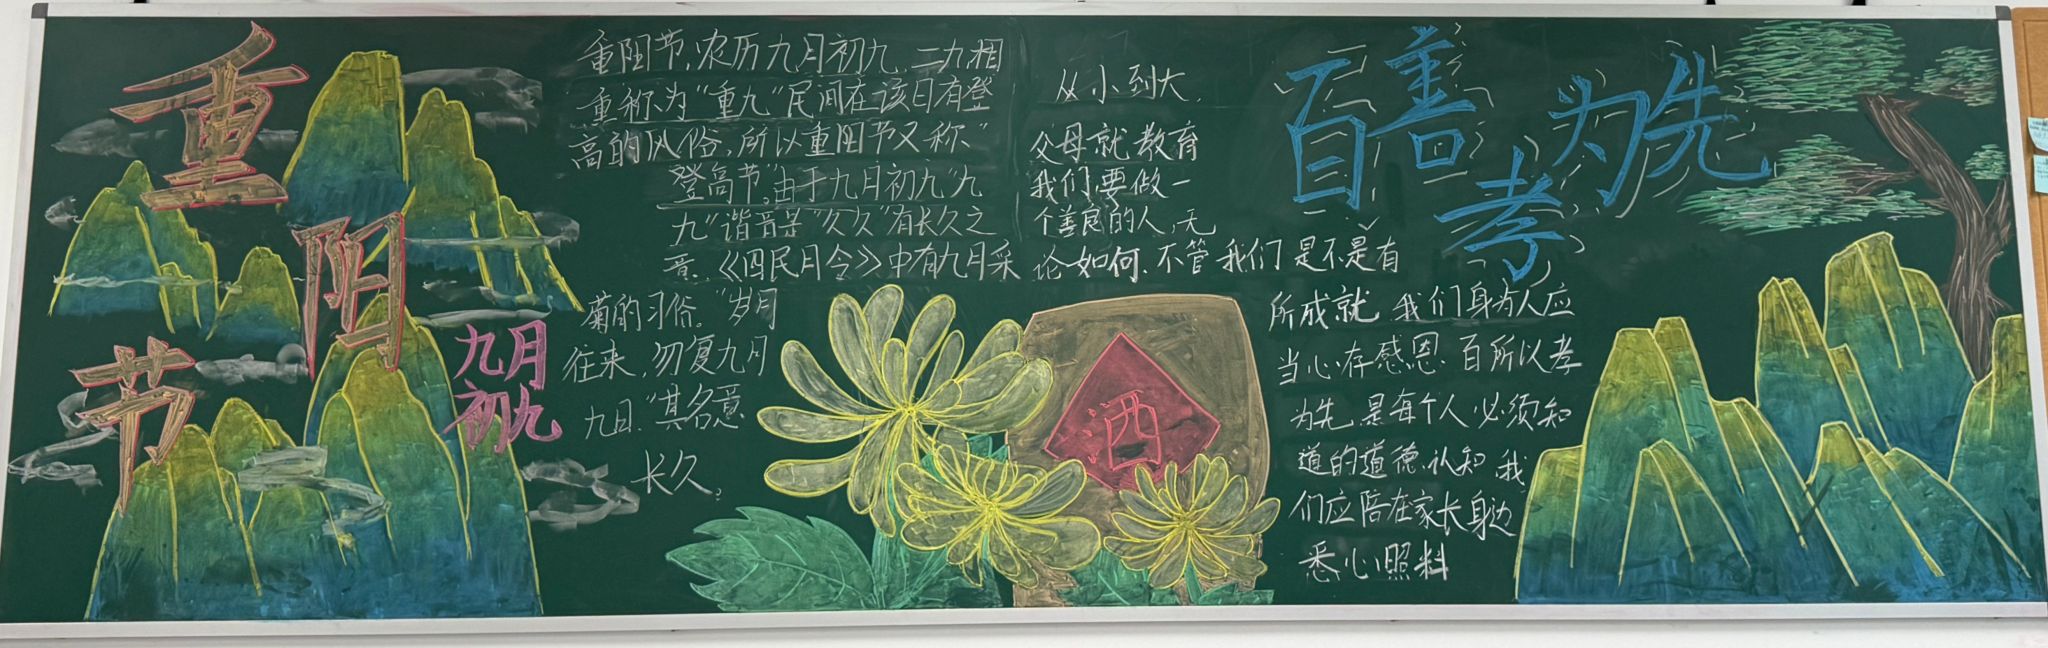 重阳节
九月
初九
重阳节，农历九月初九，二九相
重称为“重九”民间在该日有登
高的风俗，所以重阳节又称“
登高节”。由于九月初九“九
九”谐音是“久久”有长久之
意。《四民月令》中有九月采
菊的习俗。“岁月
往来，勿复九月
九日，”其名意
长久。
从小到大，
父母就教育
我们，要做一
个善良的人，无
论如何，不管我们是不是有
所成就，我们身为人应
当心存感恩，百所以孝
为先，是每个人必须知
道的道德认知，我
们应陪在家长身边
悉心照料
酒
百善孝为先